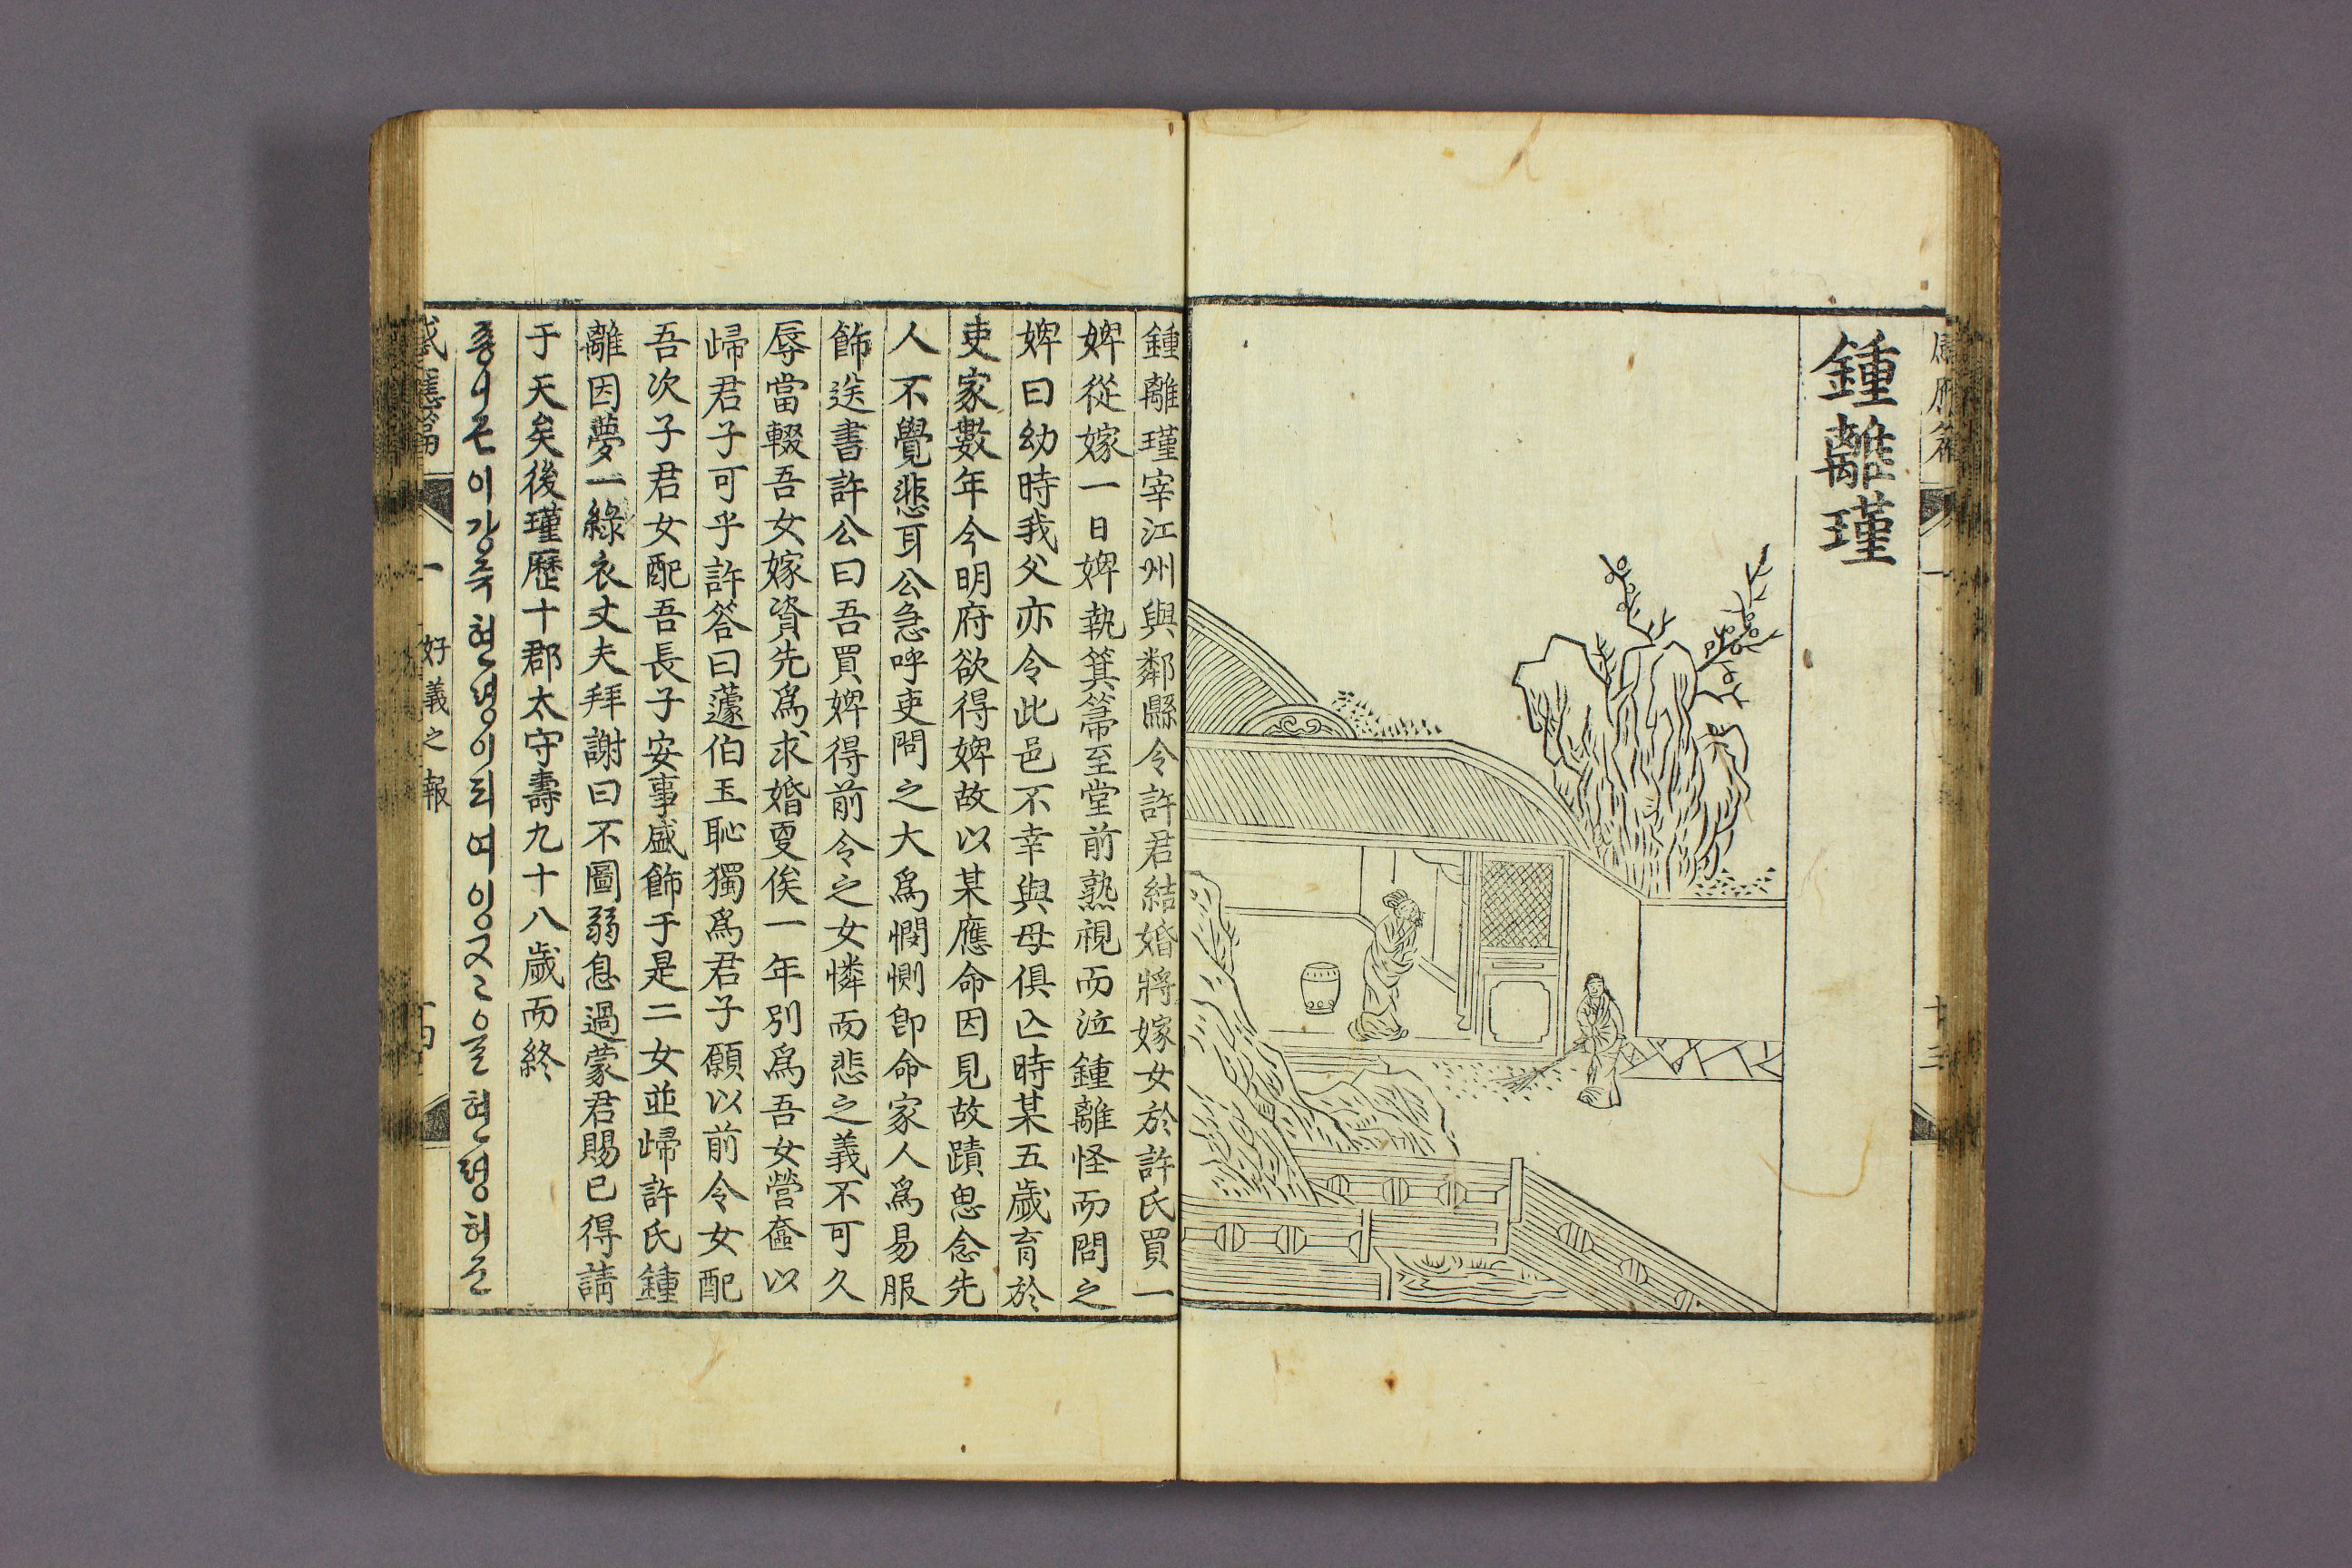 鍾離瑾
鍾離瑾宰江州與鄰縣令許君結婚將嫁女於許氏買一
婢從嫁一日婢執箕箒至堂前熟視而泣鍾離怪而問之
婢曰幼時我父亦令此邑不幸與母俱亡時某五歲育於
吏家數年今明府欲得婢故以某應命因見故蹟思念先
人不覺悲耳公急呼吏問之大爲憫惻卽命家人爲易服
飾送書許公曰吾買婢得前令之女憐而悲之義不可久
辱當輟吾女嫁資先爲求婚更俟一年別爲吾女營奩以
歸君子可乎許答曰蘧伯玉恥獨爲君子願以前令女配
吾次子君女配吾長子安事盛飾于是二女並歸許氏鍾
離因夢一綠衣丈夫拜謝曰不圖弱息過蒙君賜已得請
于天矣後瑾歷十郡太守壽九十八歲而終
죵니근이강쥬현령이되여이웃고을현령허군
感應篇 一 好義之報